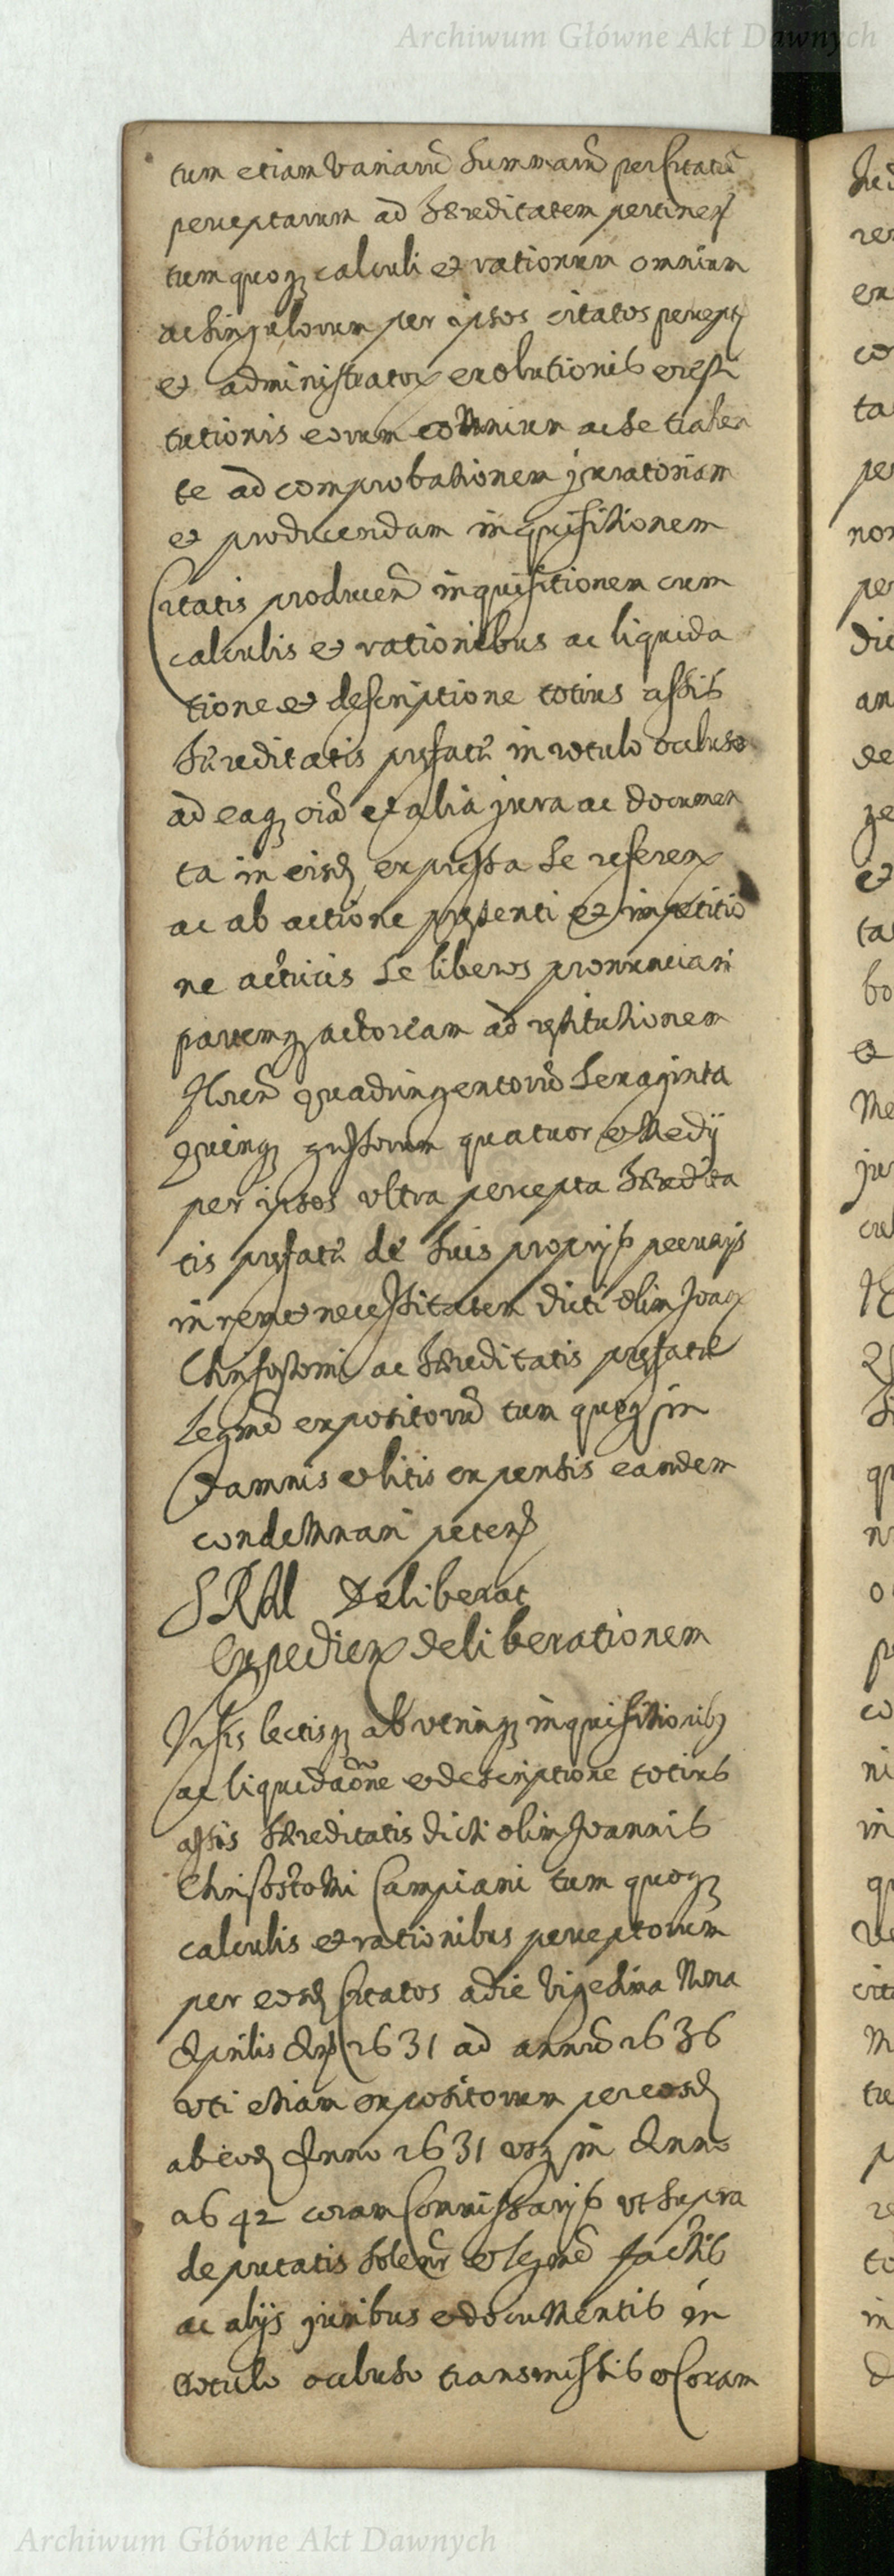 Archiwum Główne Akt Dawnych
tum etiam variarũ Summarũ per Citatũ
perceptarum ad Hæreditatem pertineñ
tum quoq; calculi et rationum omnium
ac Singulorum per ipsos citatos percept
et administrator exolutionis et resti
tutionis eorum omnium ac Se trahen
te ad comprobationem juratoriam
et producendam inquisitionem
Citatis produceñ inquisitionem cum
calculis et rationibus ac liquida
tione et descriptione totius assis
Hæreditatis præfatæ in rotulo occluso
ad eaq; oĩa et alia jura ac documen
ta in eisd expressa Se referen
ac ab actione præsenti et impetitio
ne actricis Se liberos pronunciari
partemq; actoream ad restitutionem
Floreñ quadringentorũ Sexaginta
quinq; grossorum quatuor et Medij
per ipsos ultra percepta Hæredita
tis præfatæ de Suis proprijs pecunijs
in rem et necessitatem dicti olim Joañ
Chrisostomi ac Hæreditatis præfatæ
Legitimè expositorũ tum quoq; in
damnis et litis expensis eandem
condemnari peteñ
SRM Deliberat
Expedien deliberationem
Visis lectisq; ab utrinq; inquisitionib;
ac liquidaõne et descriptione totius
assis Hæreditatis dicti olim Joannis
Chrisostomi Campiani tum quoq;
calculis et rationibus perceptorum
per eosd Citatos a die Vigesima Nona
Aprilis Añi 1631 ad annũ 1636
uti etiam expositorum per eosd
ab eod Anno 1631 usq; in Anno
1642 coram Commissarijs ut Supra
deputatis Solenr et legmè factis
ac alijs juribus et documentis in
Rotulo occluso transmissis et Coram
Archiwum Główne Akt Dawnych